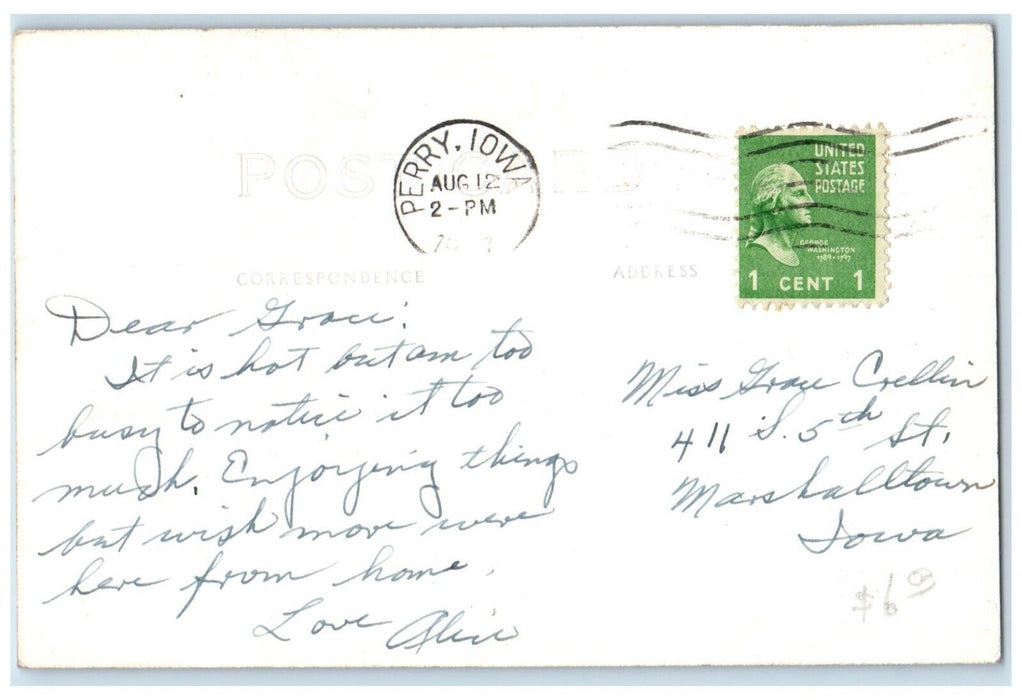 POST CARD
PERRY, IOWA
AUG 12
2-PM
UNITED
STATES
POSTAGE
GEORGE
WASHINGTON
1789-1797
1 CENT 1
CORRESPONDENCE
ADDRESS
Dear Grace:
It is hot but am too
busy to notice it too
much. Enjoying things
but wish more were
here from home.
Love Alice
Miss Grace Crellin
411 S. 5th St.
Marshalltown
Iowa
$6